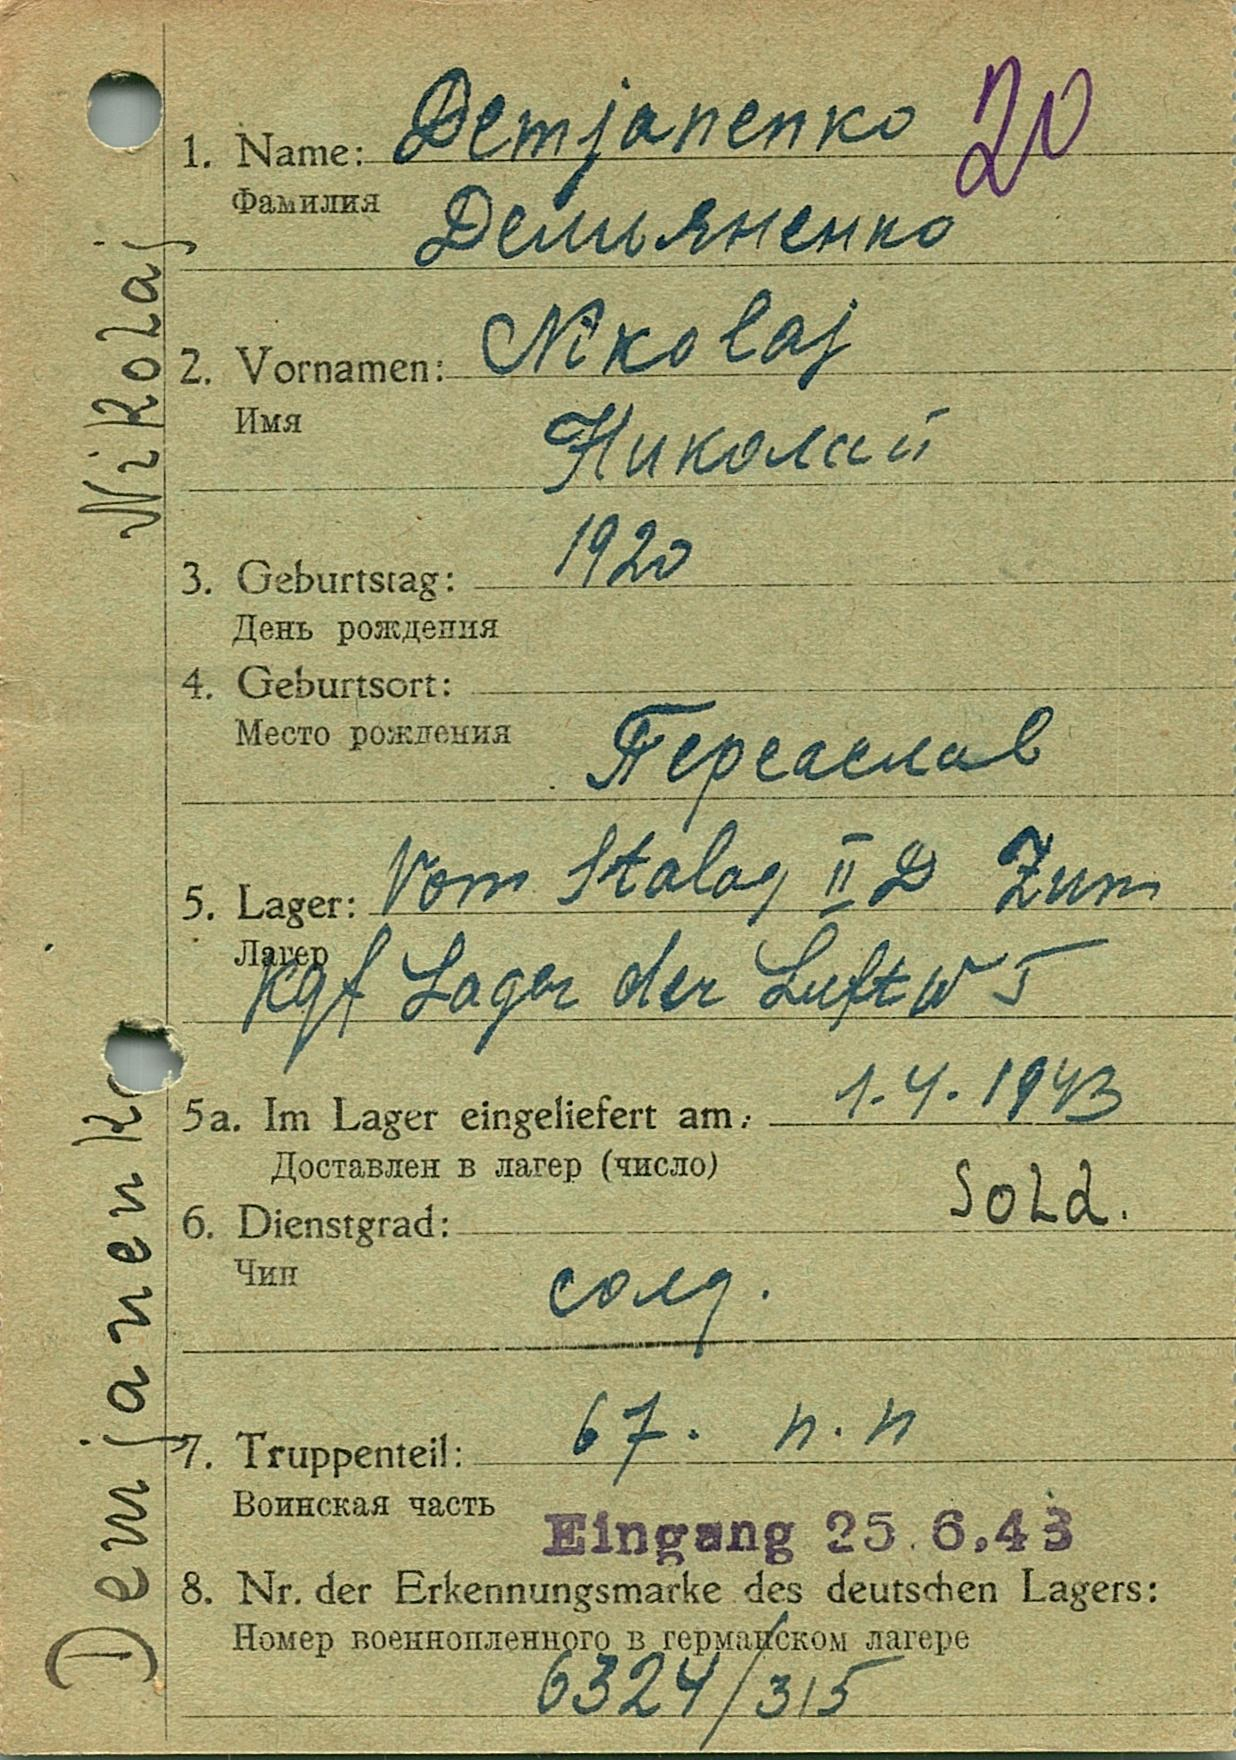 Demjanenko 20
1. Name:
Фамилия
Демьяненко
Nikolaj
2. Vornamen:
Имя
Николай
1920
3. Geburtstag:
День рождения
4. Geburtsort:
Место рождения
Переаслав
5. Lager: Vom Stalag II D Zum
Лагер
Kgf Lager der Luftw 5
5a. Im Lager eingeliefert am: 1.4.1943
Доставлен в лагер (число)
6. Dienstgrad: Sold.
Чин
солд.
7. Truppenteil: 67. п.п
Воинская часть
Eingang 25.6.43
8. Nr. der Erkennungsmarke des deutschen Lagers:
Номер военнопленного в германском лагере
6324/315
Demjanenko Nikolaj